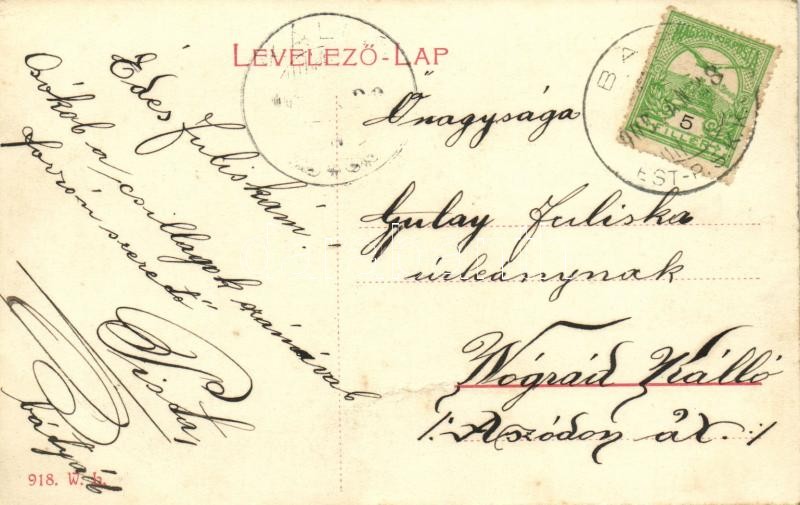 LEVELEZŐ-LAP
Édes Juliskám!
Csókol a csillagok számával
forrón szerető
Pista
bátyád
Őnagysága
Gulay Juliska
úrleánynak
Nógrád Kálló
/: Aszódon át. :/
MAGYAR KIR. POSTA
5
FILLÉR
BA
EST-
918. W. L.